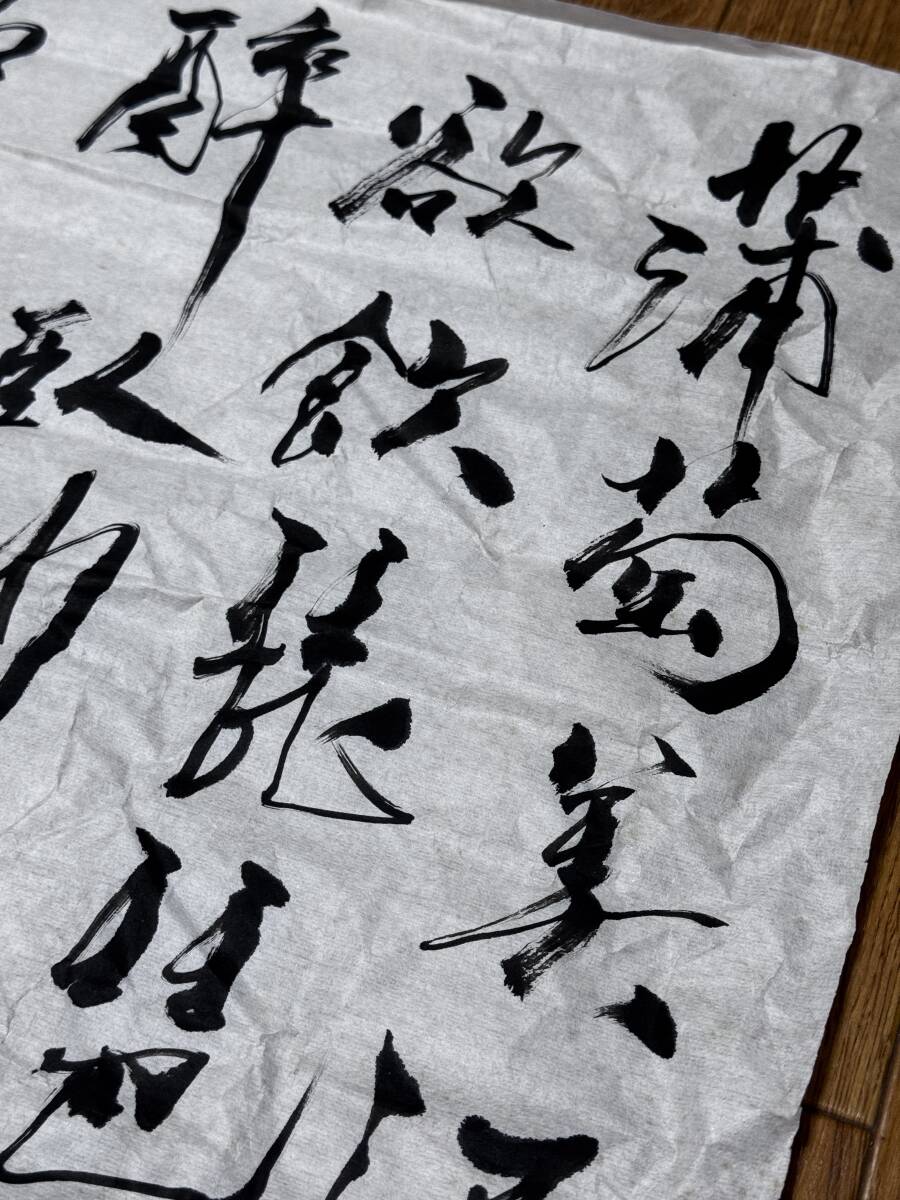 蒲萄美
欲飲琵琶
醉臥